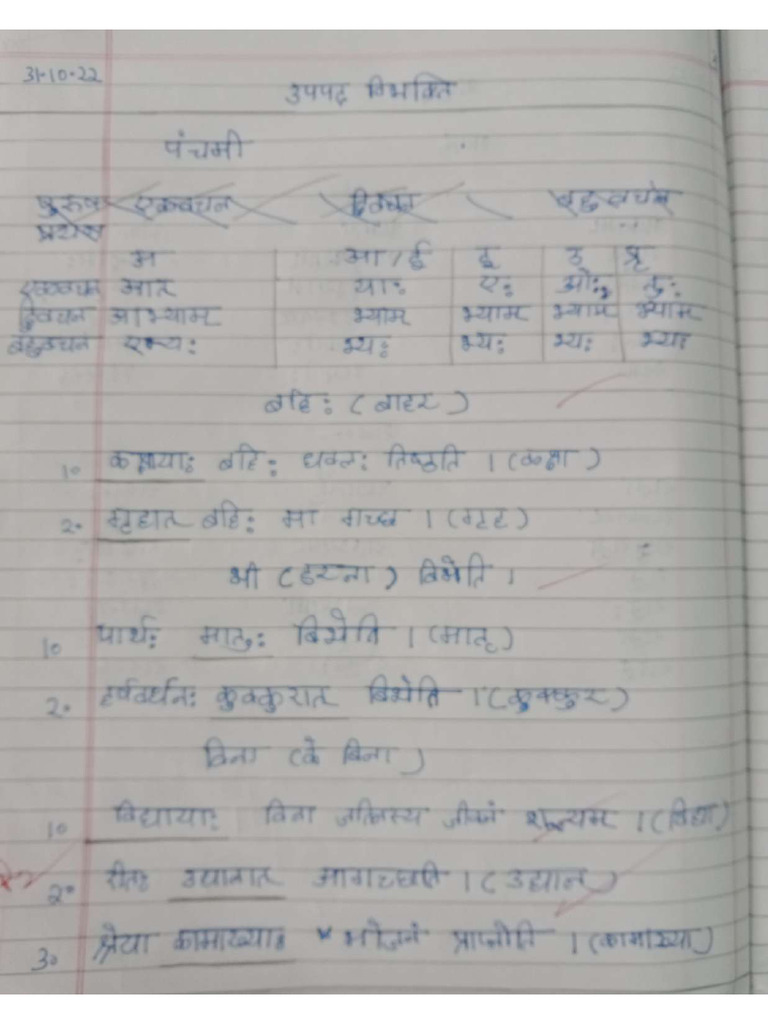 31-10-22
उपपद विभक्ति
पंचमी
पुरुष एकवचन द्विवचन बहुवचन
प्रत्यय
अ आ/ई इ उ ऋ
एकवचन आत् याः एः ओः तुः
द्विवचन आभ्याम् भ्याम् भ्याम् भ्याम् भ्याम्
बहुवचन एभ्यः भ्यः भ्यः भ्यः भ्यः
बहिः (बाहर)
1. कक्षायाः बहिः धवलः तिष्ठति । (कक्षा)
2. गृहात् बहिः मा गच्छ । (गृह)
भी (डरना) बिभेति ।
1. पार्थः मातुः बिभेति । (मातृ)
2. हर्षवर्धनः कुक्कुरात् बिभेति । (कुक्कुर)
विना (के बिना)
1. विद्यायाः विना जीवनं शून्यम् । (विद्या)
2. उद्यानात् आगच्छति । (उद्यान)
3. श्रेया कामाख्याः भोजनं प्राप्नोति । (कामाख्या)